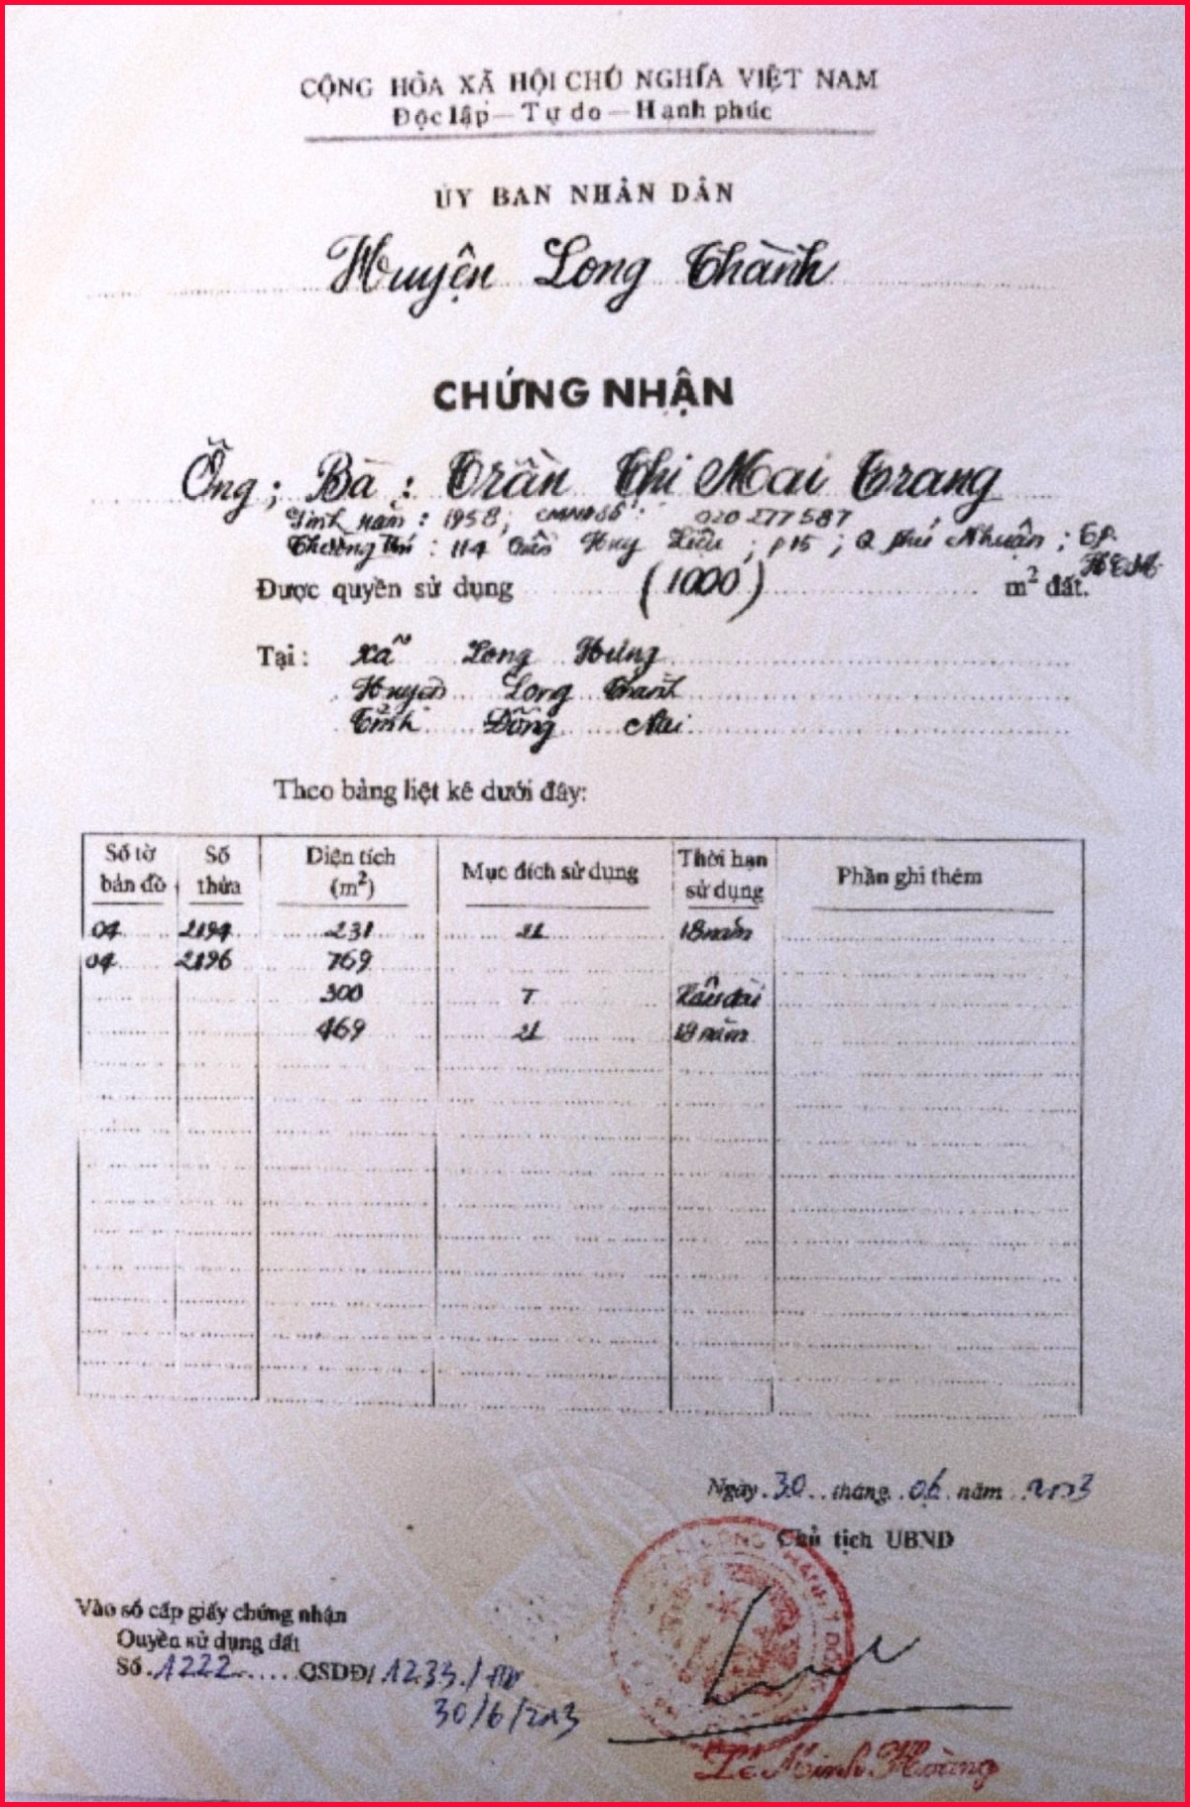 CỘNG HÒA XÃ HỘI CHỦ NGHĨA VIỆT NAM
Độc lập - Tự do - Hạnh phúc
ỦY BAN NHÂN DÂN
Huyện Long Thành
CHỨNG NHẬN
Ông; Bà: Trần Thị Mai Trang
Sinh năm: 1958; CMND số: 020277587
Thường trú: 114 Trần Huy Liệu; P15; Q Phú Nhuận; TP. HCM
Được quyền sử dụng (1000) m² đất.
Tại: Xã Long Hưng
Huyện Long Thành
Tỉnh Đồng Nai
Theo bảng liệt kê dưới đây:
Số tờ bản đồ Số thửa Diện tích (m²) Mục đích sử dụng Thời hạn sử dụng Phần ghi thêm
04 2194 231 18 năm
04 2196 769
300 T Lâu dài
469 18 năm
Ngày 30 tháng 06 năm 2003
Chủ tịch UBND
Vào sổ cấp giấy chứng nhận
Quyền sử dụng đất
Số 1222 QSDĐ/ 1233/
30/6/2003
Lê Minh Hoàng